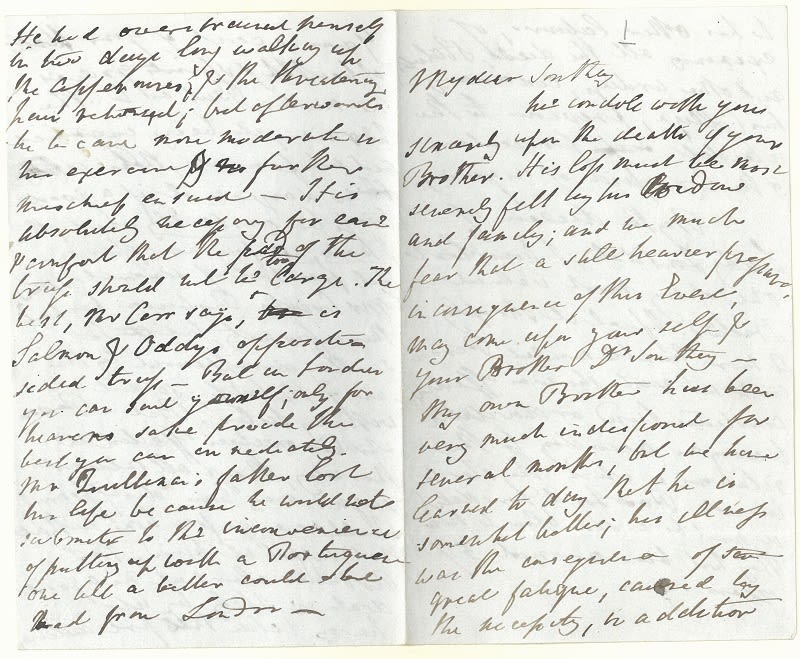 1
My dear Southey
We condole with you
sincerely upon the death of your
Brother. His loss must be most
severely felt by his Widow
and family; and we much
fear that a still heavier pressure,
in consequence of this Event,
may come upon yourself &
your Brother Dr Southey —
My own Brother has been
very much indisposed for
several months, but we have
learned to day that he is
somewhat better; his illness
was the consequence of
great fatigue, caused by
the necessity, in addition
He had overstrained himself
in two days long walking up
the Appennines, & the threatening
have returned; but afterwards
he became more moderate in
his exercise & no further
mischief ensued — It is
absolutely necessary for ease
& comfort that the pad of the
truss should not be too large. The
best, Mr Carr says, is
Salmon & Oddys opposite
sided truss — But in London
you can suit yourself; only for
heavens sake provide the
best you can immediately.
Mr Quillinan's father lost
his life because he would not
submit to the inconvenience
of putting up with a Portuguese
one till a better could be
had from London —